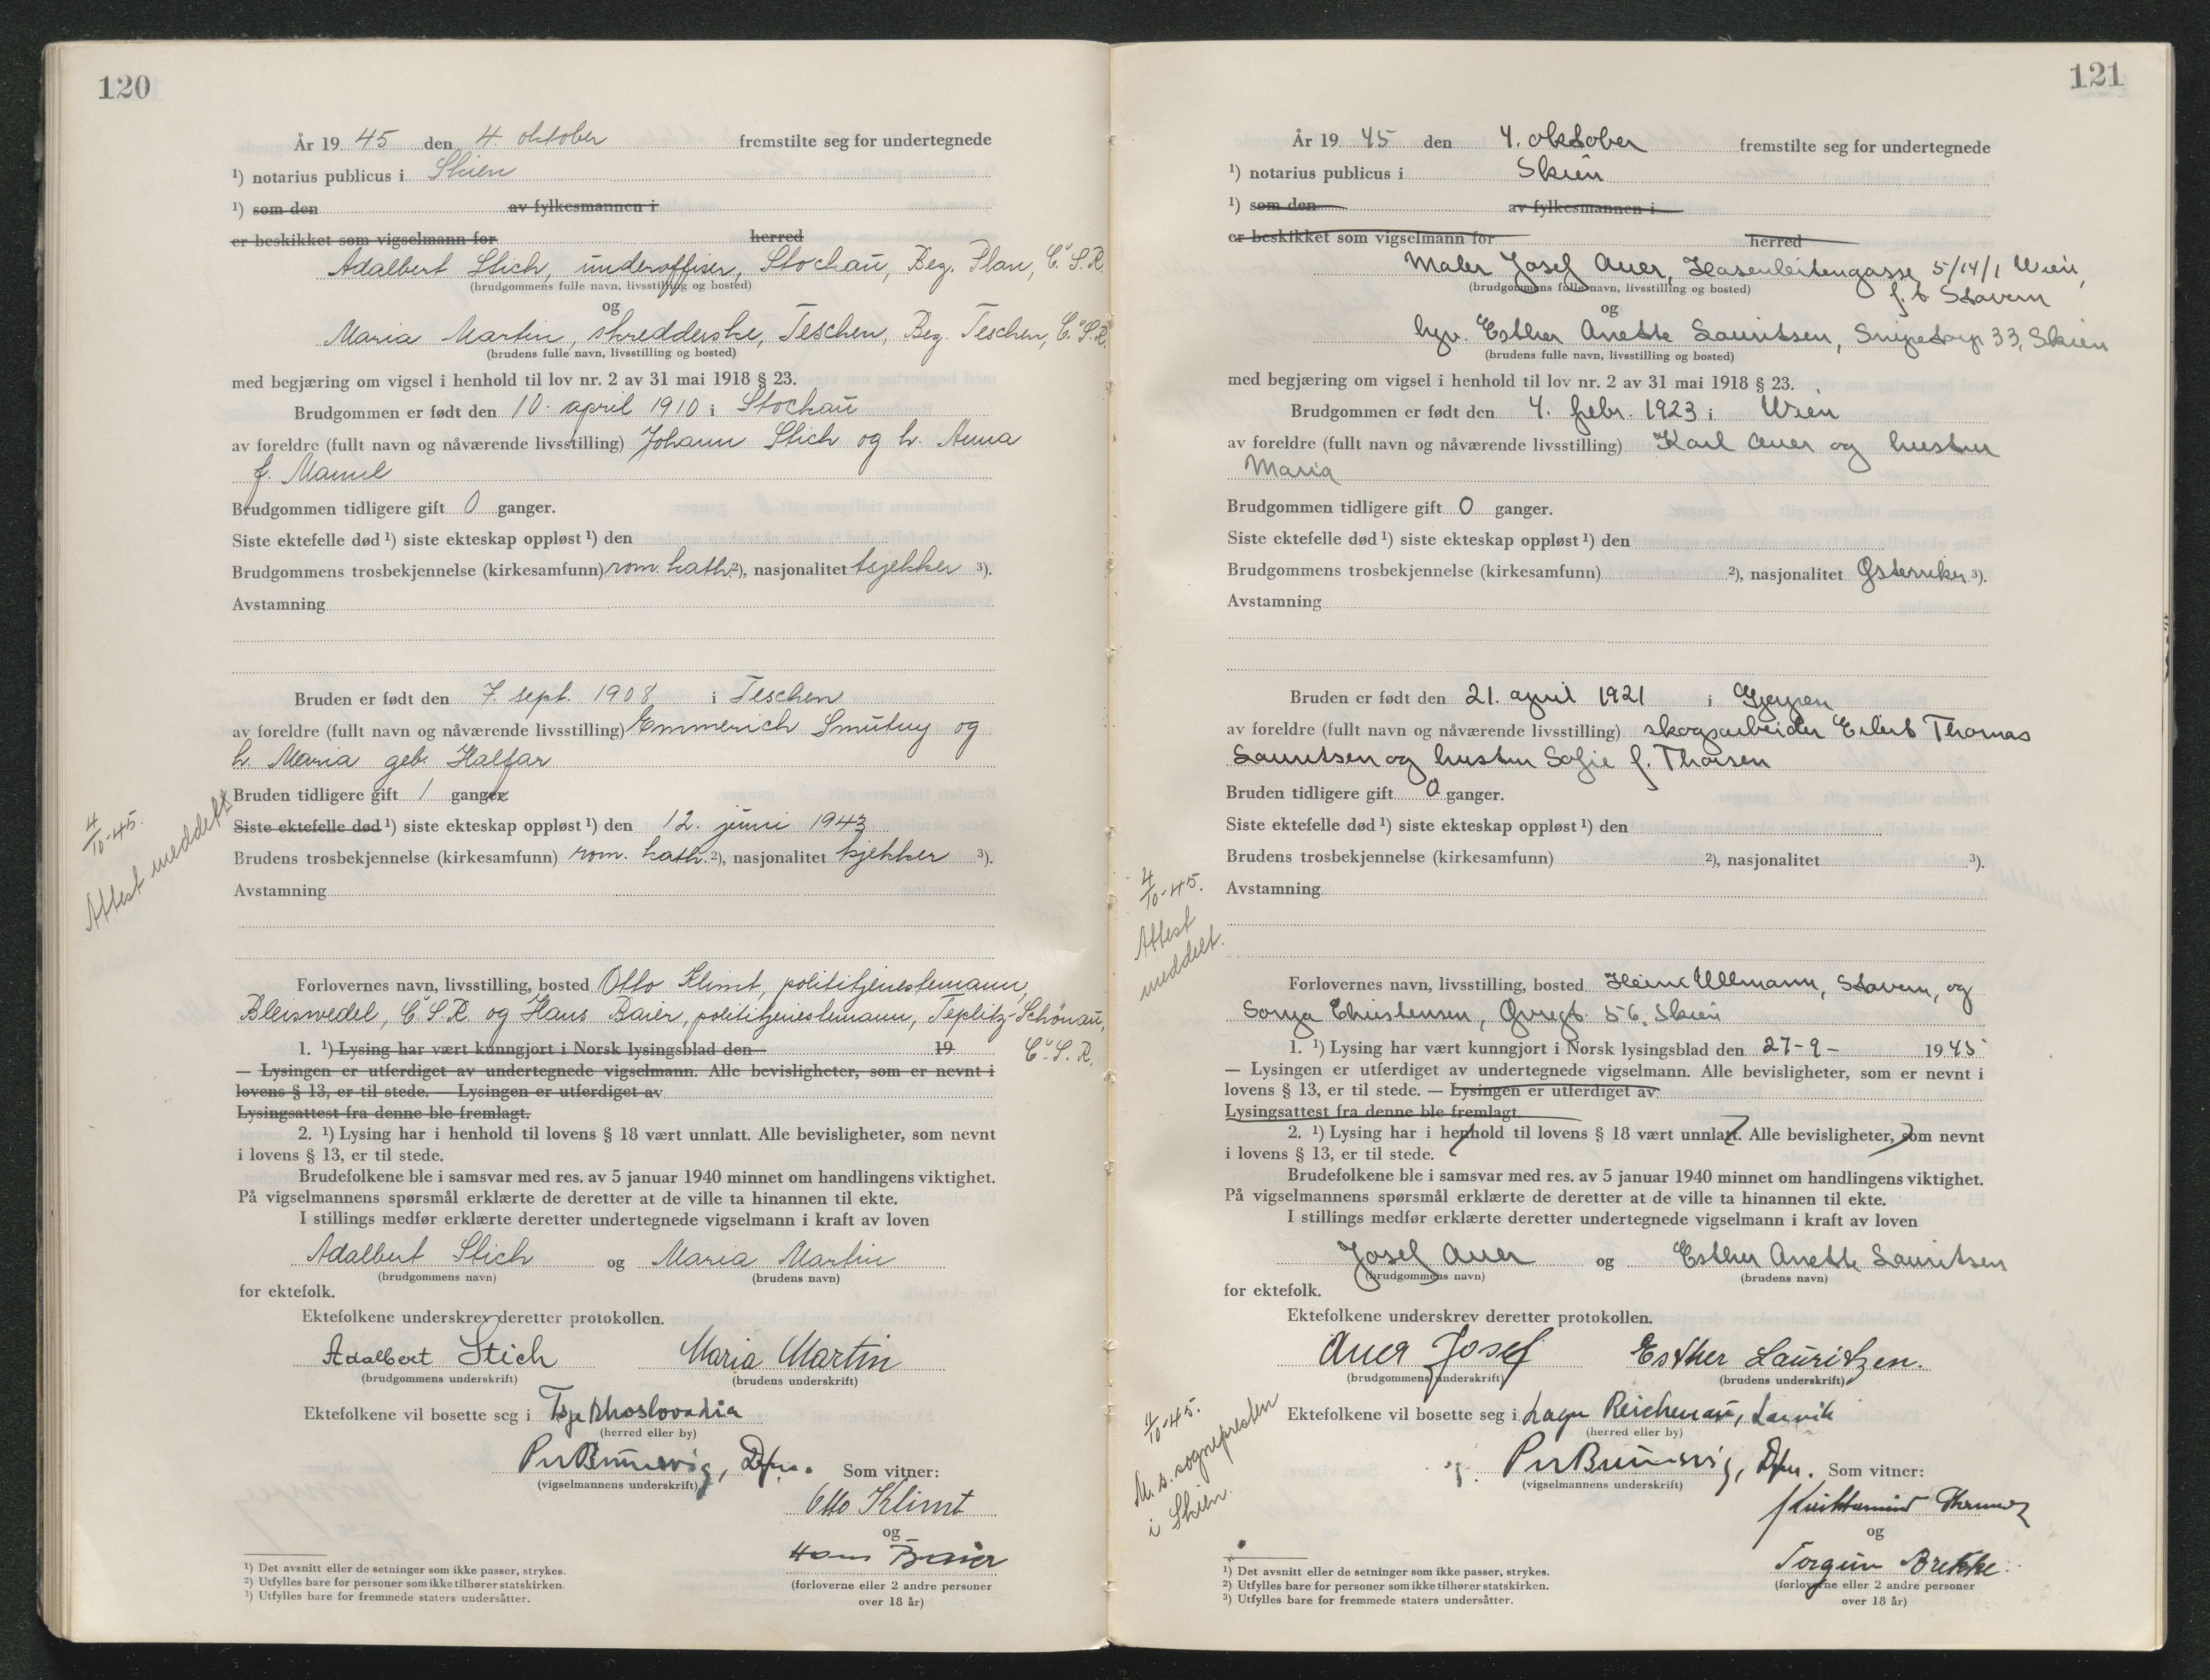 120
År 19 45 den 4. oktober fremstilte seg for undertegnede
¹) notarius publicus i Skien
¹) som den av fylkesmannen i
er beskikket som vigselmann for herred
Adalbert Stich, underoffiser, Stochau, Bez. Plan, Č.S.R.
(brudgommens fulle navn, livsstilling og bosted)
og
Maria Martin, skredderske, Teschen, Bez. Teschen, Č.S.R.
(brudens fulle navn, livsstilling og bosted)
med begjæring om vigsel i henhold til lov nr. 2 av 31 mai 1918 § 23.
Brudgommen er født den 10. april 1910 i Stochau
av foreldre (fullt navn og nåværende livsstilling) Johann Stich og h. Anna
f.
Brudgommen tidligere gift 0 ganger.
Siste ektefelle død ¹) siste ekteskap oppløst ¹) den
Brudgommens trosbekjennelse (kirkesamfunn) rom. kath. ²), nasjonalitet tsjekker ³).
Avstamning
Bruden er født den 7. sept. 1908 i Teschen
av foreldre (fullt navn og nåværende livsstilling) Emmerich Smutny og
h. Maria geb. Halfar
Bruden tidligere gift 1 ganger.
Siste ektefelle død ¹) siste ekteskap oppløst ¹) den 12. juni 1943
Brudens trosbekjennelse (kirkesamfunn) rom. kath. ²), nasjonalitet tsjekker ³).
Avstamning
4/10-45.
Attest meddelt
Forlovernes navn, livsstilling, bosted Otto Klimt, polititjenestemann,
Bleiswedel, Č.S.R. og Hans Baier, polititjenestemann, Teplitz-Schönau,
Č.S.R.
1. ¹) Lysing har vært kunngjort i Norsk lysingsblad den 19
— Lysingen er utferdiget av undertegnede vigselmann. Alle bevisligheter, som er nevnt i
lovens § 13, er til stede. — Lysingen er utferdiget av
Lysingsattest fra denne ble fremlagt.
2. ¹) Lysing har i henhold til lovens § 18 vært unnlatt. Alle bevisligheter, som nevnt
i lovens § 13, er til stede.
Brudefolkene ble i samsvar med res. av 5 januar 1940 minnet om handlingens viktighet.
På vigselmannens spørsmål erklærte de deretter at de ville ta hinannen til ekte.
I stillings medfør erklærte deretter undertegnede vigselmann i kraft av loven
Adalbert Stich og Maria Martin
(brudgommens navn) (brudens navn)
for ektefolk.
Ektefolkene underskrev deretter protokollen.
Adalbert Stich Maria Martin
(brudgommens underskrift) (brudens underskrift)
Ektefolkene vil bosette seg i Tsjekkoslovakia
(herred eller by)
Dfm. Som vitner:
(vigselmannens underskrift)
Otto Klimt
og
Hans Baier
(forloverne eller 2 andre personer
over 18 år)
¹) Det avsnitt eller de setninger som ikke passer, strykes.
²) Utfylles bare for personer som ikke tilhører statskirken.
³) Utfylles bare for fremmede staters undersåtter.
121
År 19 45 den 4. oktober fremstilte seg for undertegnede
¹) notarius publicus i Skien
¹) som den av fylkesmannen i
er beskikket som vigselmann for herred
Maler Josef Auer, Hasenleitengasse 5/14/1 Wien,
f.t. Stavern
(brudgommens fulle navn, livsstilling og bosted)
og
Esther Anette Lauritsen, Snipetorp 33, Skien
(brudens fulle navn, livsstilling og bosted)
med begjæring om vigsel i henhold til lov nr. 2 av 31 mai 1918 § 23.
Brudgommen er født den 4. febr. 1923 i Wien
av foreldre (fullt navn og nåværende livsstilling) Karl Auer og hustru
Maria
Brudgommen tidligere gift 0 ganger.
Siste ektefelle død ¹) siste ekteskap oppløst ¹) den
Brudgommens trosbekjennelse (kirkesamfunn) ²), nasjonalitet Østerriker ³).
Avstamning
Bruden er født den 21. april 1921 i Gjerpen
av foreldre (fullt navn og nåværende livsstilling) skogsarbeider Eilert Thomas
Lauritsen og hustru Sofie f.
Bruden tidligere gift 0 ganger.
Siste ektefelle død ¹) siste ekteskap oppløst ¹) den
Brudens trosbekjennelse (kirkesamfunn) ²), nasjonalitet ³).
Avstamning
4/10-45.
Attest
meddelt.
Forlovernes navn, livsstilling, bosted Heinz Ullmann, Stavern, og
Sonja Christensen, 56, Skien
1. ¹) Lysing har vært kunngjort i Norsk lysingsblad den 27-9- 1945
— Lysingen er utferdiget av undertegnede vigselmann. Alle bevisligheter, som er nevnt i
lovens § 13, er til stede. — Lysingen er utferdiget av
Lysingsattest fra denne ble fremlagt
2. ¹) Lysing har i henhold til lovens § 18 vært unnlatt. Alle bevisligheter, som nevnt
i lovens § 13, er til stede.
Brudefolkene ble i samsvar med res. av 5 januar 1940 minnet om handlingens viktighet.
På vigselmannens spørsmål erklærte de deretter at de ville ta hinannen til ekte.
I stillings medfør erklærte deretter undertegnede vigselmann i kraft av loven
Josef Auer og Esther Anette Lauritsen
(brudgommens navn) (brudens navn)
for ektefolk.
Ektefolkene underskrev deretter protokollen.
Auer Josef Esther Lauritzen.
(brudgommens underskrift) (brudens underskrift)
Ektefolkene vil bosette seg i Lager Reichenau, Larvik
(herred eller by)
4/10-45.
M. s. sognepresten
i Skien.
Dfm. Som vitner:
(vigselmannens underskrift)
og
Torgun Brekke.
(forloverne eller 2 andre personer
over 18 år)
¹) Det avsnitt eller de setninger som ikke passer, strykes.
²) Utfylles bare for personer som ikke tilhører statskirken.
³) Utfylles bare for fremmede staters undersåtter.